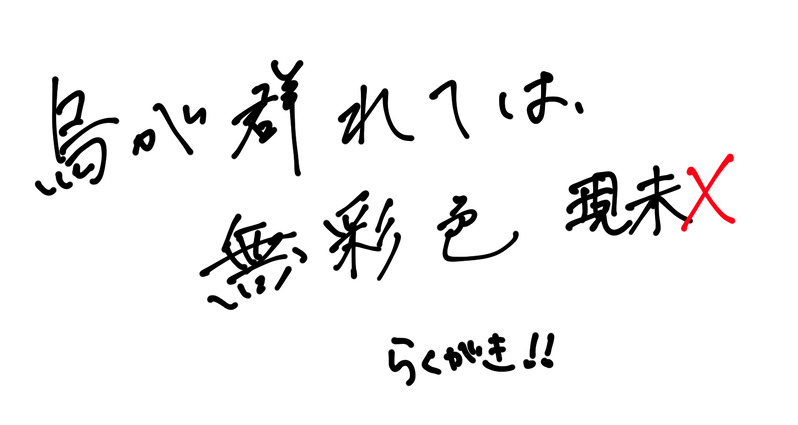 鳥が群れては、
無彩色
現未X
らくがき!!